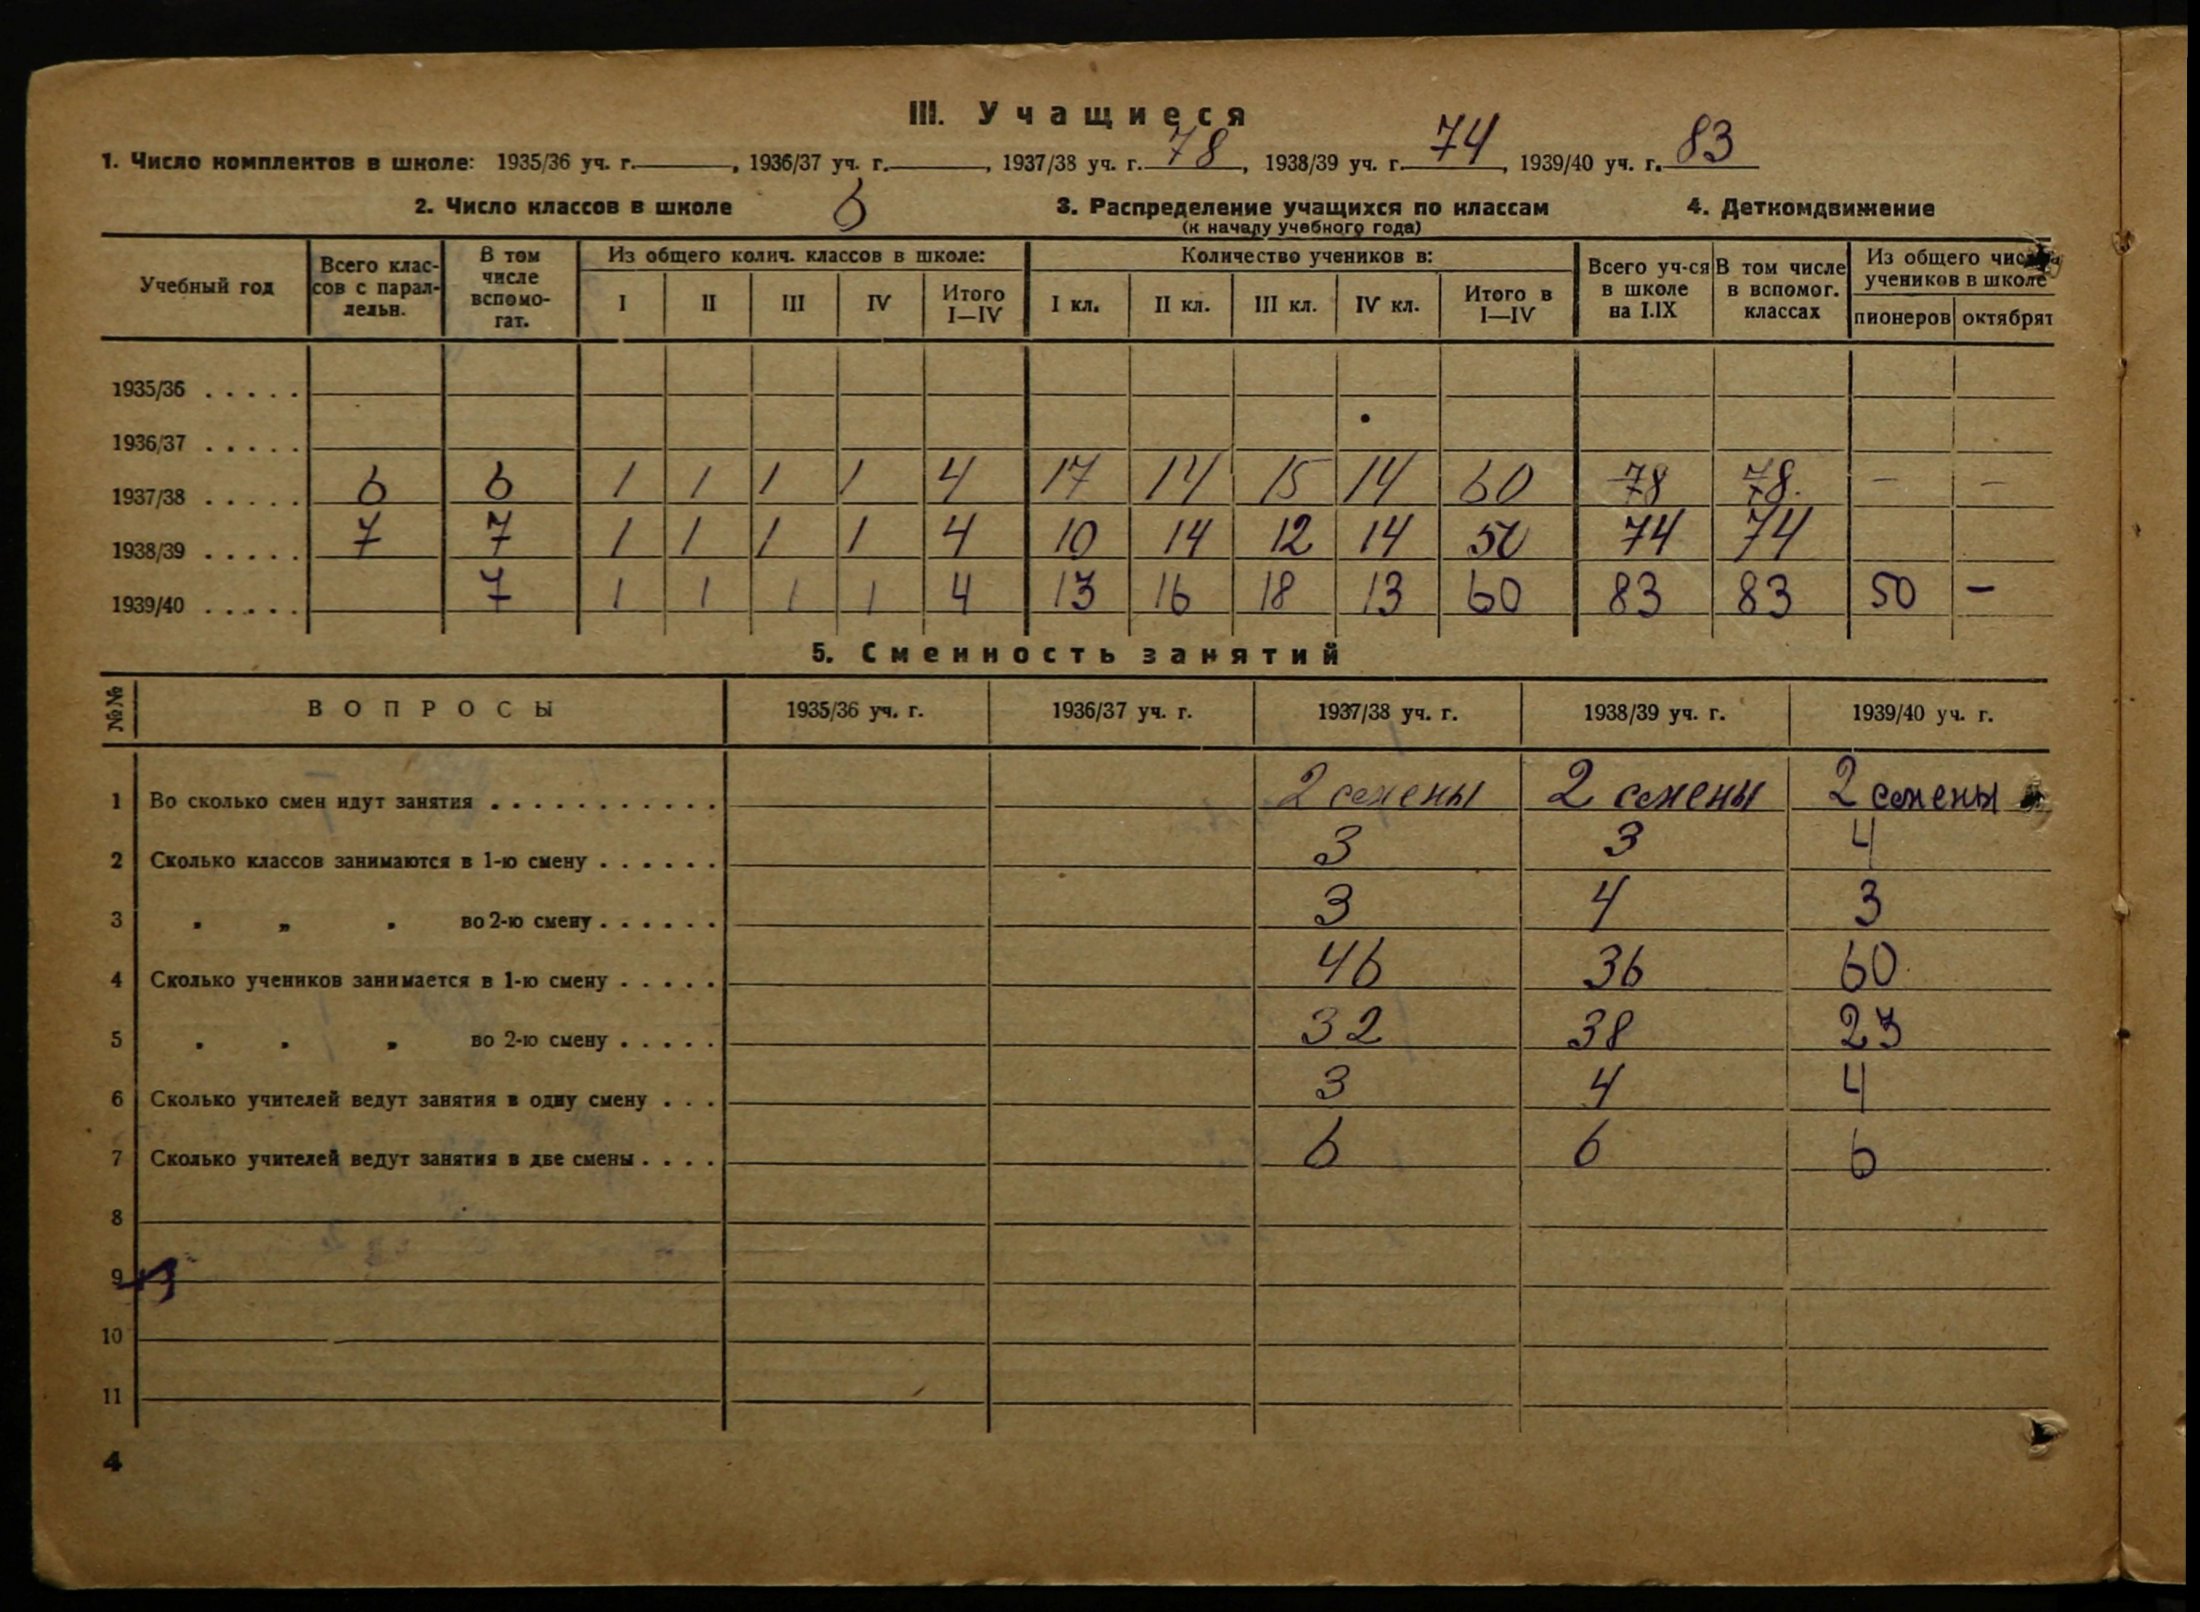 III. Учащиеся
1. Число комплектов в школе: 1935/36 уч. г. , 1936/37 уч. г. , 1937/38 уч. г. 78, 1938/39 уч. г. 74, 1939/40 уч. г. 83
2. Число классов в школе 6 3. Распределение учащихся по классам 4. Деткомдвижение
(к началу учебного года)
Учебный год Всего классов с параллельн. В том числе вспомогат. Из общего колич. классов в школе: Количество учеников в: Всего уч-ся в школе на I.IX В том числе в вспомог. классах Из общего числа учеников в школе
I II III IV Итого I—IV I кл. II кл. III кл. IV кл. Итого в I—IV пионеров октябрят
1935/36 . . . . .
1936/37 . . . . .
1937/38 . . . . . 6 6 1 1 1 1 4 17 14 15 14 60 78 78. — —
1938/39 . . . . . 7 7 1 1 1 1 4 10 14 12 14 50 74 74
1939/40 . . . . . 7 1 1 1 1 4 13 16 18 13 60 83 83 50 —
5. Сменность занятий
№№ ВОПРОСЫ 1935/36 уч. г. 1936/37 уч. г. 1937/38 уч. г. 1938/39 уч. г. 1939/40 уч. г.
1 Во сколько смен идут занятия . . . . . . . . . . . 2 смены 2 смены 2 смены
2 Сколько классов занимаются в 1-ю смену . . . . . . 3 3 4
3 „ „ „ во 2-ю смену . . . . . . 3 4 3
4 Сколько учеников занимается в 1-ю смену . . . . . 46 36 60
5 „ „ „ во 2-ю смену . . . . . 32 38 23
6 Сколько учителей ведут занятия в одну смену . . . 3 4 4
7 Сколько учителей ведут занятия в две смены . . . . 6 6 6
8
9
10
11
4